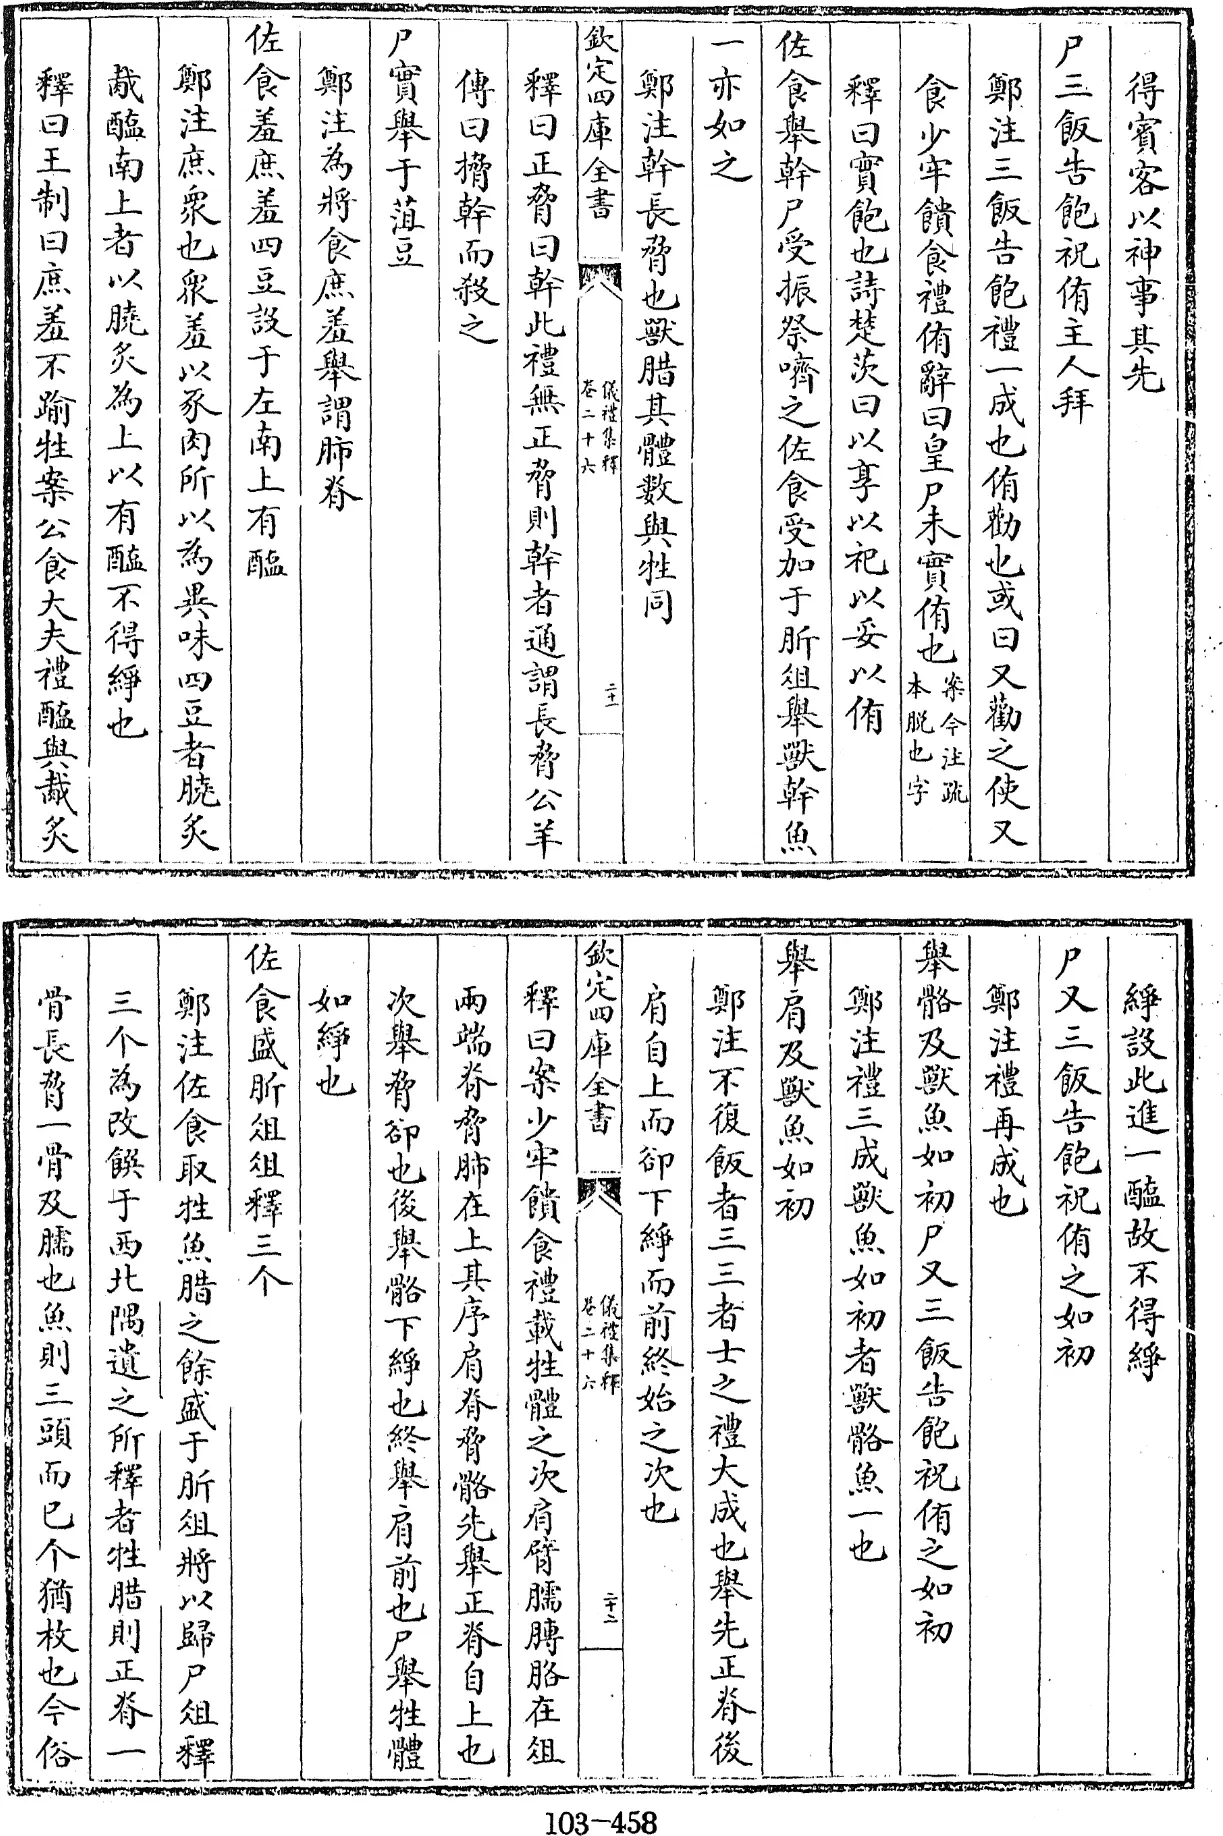 得賓客以神事其先
尸三飯告飽祝侑主人拜
鄭注三飯告飽禮一成也侑勸也或曰又勸之使又
食少牢饋食禮侑辭曰皇尸未實侑也案今注疏本脱也字
釋曰實飽也詩楚茨曰以享以祀以妥以侑
佐食舉幹尸受振祭嚌之佐食受加于肵俎舉獸幹魚
一亦如之
鄭注幹長脅也獸腊其體數與牲同
欽定四庫全書
儀禮集釋
卷二十六
二十一
釋曰正脅曰幹此禮無正脅則幹者通謂長脅公羊
傳曰搚幹而殺之
尸實舉于菹豆
鄭注為將食庶羞舉謂肺脊
佐食羞庶羞四豆設于左南上有醢
鄭注庶衆也衆羞以豕肉所以為異味四豆者膮炙
胾醢南上者以膮炙為上以有醢不得綪也
釋曰王制曰庶羞不踰牲案公食大夫禮醢與胾炙
綪設此進一醢故不得綪
尸又三飯告飽祝侑之如初
鄭注禮再成也
舉骼及獸魚如初尸又三飯告飽祝侑之如初
鄭注禮三成獸魚如初者獸骼魚一也
舉肩及獸魚如初
鄭注不復飯者三三者士之禮大成也舉先正脊後
肩自上而卻下綪而前終始之次也
欽定四庫全書
儀禮集釋
卷二十六
二十二
釋曰案少牢饋食禮載牲體之次肩臂臑膊胳在俎
兩端脊脅肺在上其序肩脊脅骼先舉正脊自上也
次舉脅卻也後舉骼下綪也終舉肩前也尸舉牲體
如綪也
佐食盛肵俎俎釋三个
鄭注佐食取牲魚腊之餘盛于肵俎將以歸尸俎釋
三个為改饌于西北隅遺之所釋者牲腊則正脊一
骨長脅一骨及臑也魚則三頭而已个猶枚也今俗
103-458